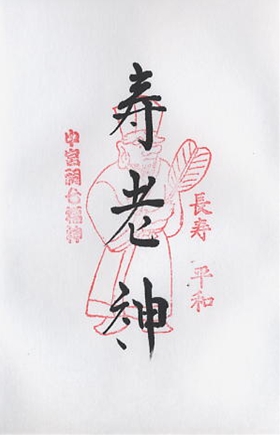 寿老神
長寿 平和
中宮祠合福神